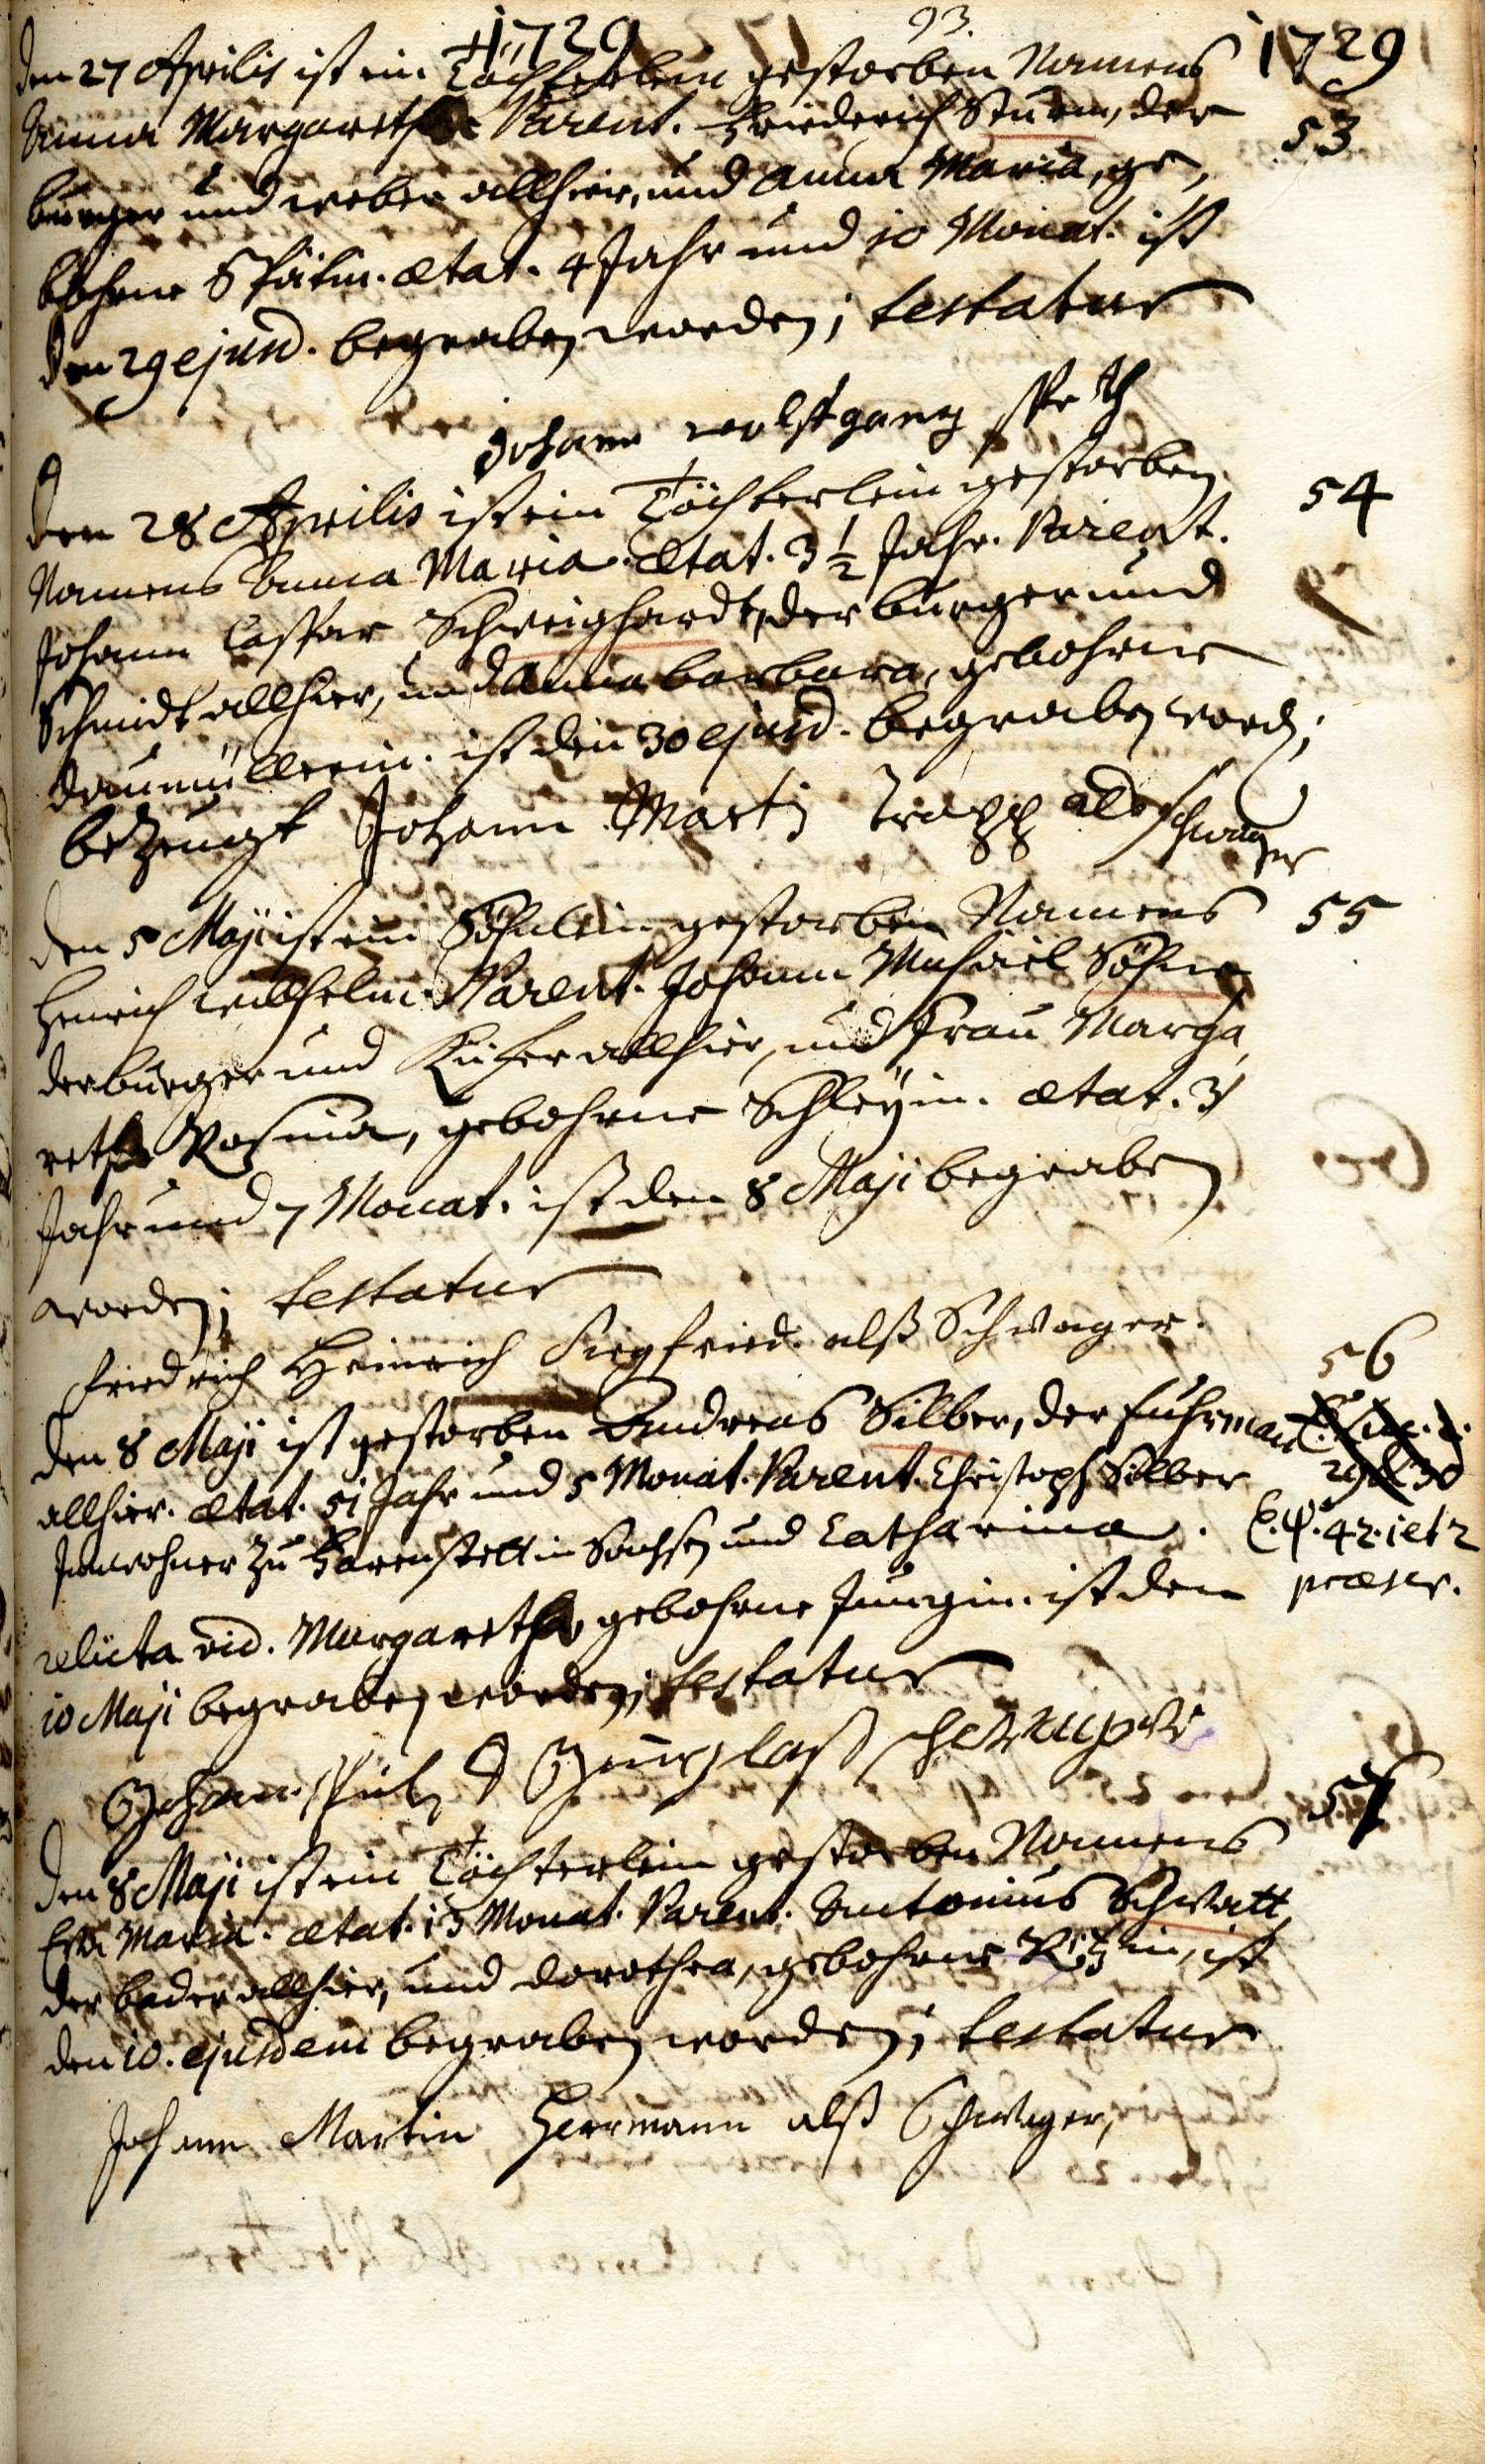 93.
1729 1729
den 27 Aprilis ist ein Töchterlein gestorben Namens
Anna Margaretha Parent. Friederich Sturm, der 53
burger und weber allhier, und Anna Maria, ge,
bohrne Spätin. ætat. 4 Jahr und 10 Monat. ist
den 29 ejusd. begraben worden; testatur
Johann wolfgang
den 28 Aprilis ist ein Töchterlein gestorben 54
Namens Anna Maria. ætat. 3 1/2 Jahr. Parent.
Johann Caspar Schweighardt, der burger und
Schmidt allhier, und Anna barbara, gebohrne
daumüllerin. ist den 30 ejusd. begraben word;
bezeugt Johann Martin Trapp als schwager
den 5 Maji ist ein Söhnlein gestorben Namens 55
Henrich wilhelm. Parent. Johann Michael Söhne
der burger und Küfer allhier, und Frau Marga,
retha Rosina, gebohrne Schleÿin. ætat. 3
Jahr und 7 Monat. ist den 8 Maji begraben
worden; testatur
Friedrich Heinrich Siegfried alß Schwager.
56
den 8 Maji ist gestorben Andreas Silber, der fuhrmann
29 30
allhier. ætat. 51 Jahr und 5 Monat. Parent. Christoph Silber
Innwohner zu in Sachsen und Catharina. 42. 1 et 2
relicta vid. Margaretha gebohrne Jungin. ist den
10 Maji begraben worden; testatur
Johann
57
den 8 Maji ist ein Töchterlein gestorben Namens
Eva Maria. ætat. 13 Monat. Parent. Antonius Schwatt,
der bader allhier, und dorothea, gebohrne ist
den 10. ejusdem begraben worden; testatur
Johann Martin Herrmann alß Schwager,